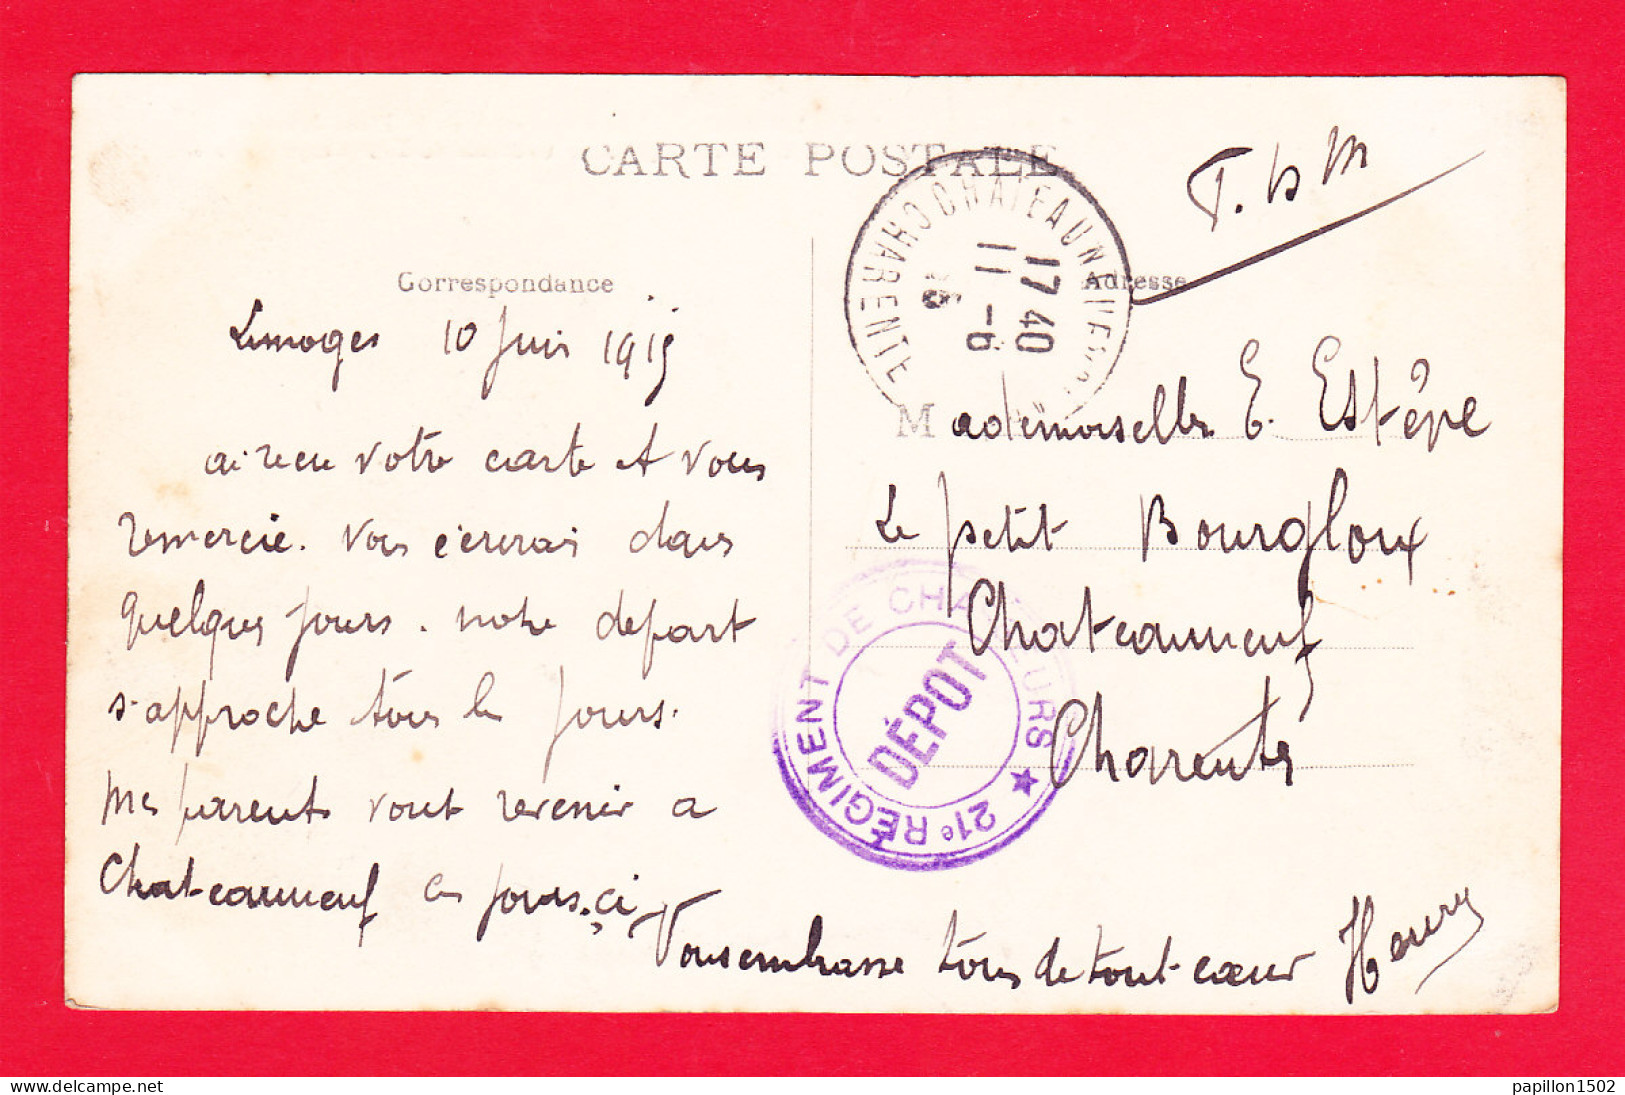 CARTE POSTALE
T. S M
Correspondance
Adresse
CHATEAUNEUF
CHARENTE
17 40
11 -6
Limoges 10 Juin 1915
ai recu votre carte et vous
remercie. Vous ecrirai dans
quelques jours. notre depart
s'approche tous les jours.
Mes parents vont revenir a
Chateauneuf ces jours.ci
Vous embrasse tous de tout coeur Henry
Mademoiselle E. Estêpe
Le petit Bourgloux
Chateauneuf
Charente
21e RÉGIMENT DE CHASSEURS ★
DÉPÔT
delcampe.net
papillon1502